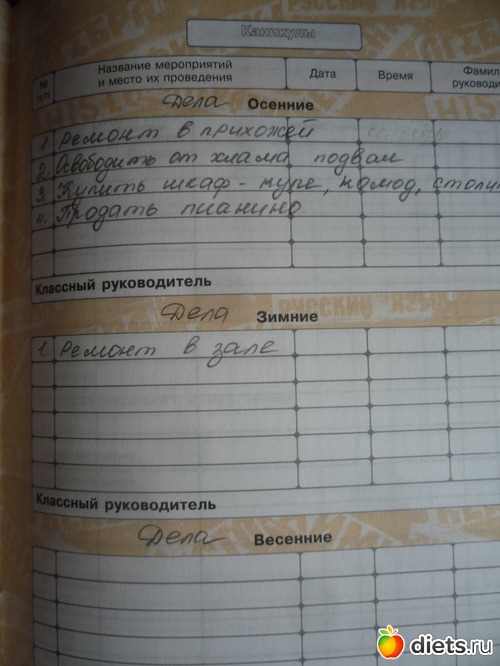 Каникулы
№ п/п
Название мероприятий и место их проведения
Дата
Время
Фамил
руковод
Дела Осенние
1. Ремонт в прихожей
2. Освободить от хлама подвал
3. Купить шкаф-купе, комод, столи
4. Продать пианино
Классный руководитель
Дела Зимние
1. Ремонт в зале
Классный руководитель
Дела Весенние
diets.ru